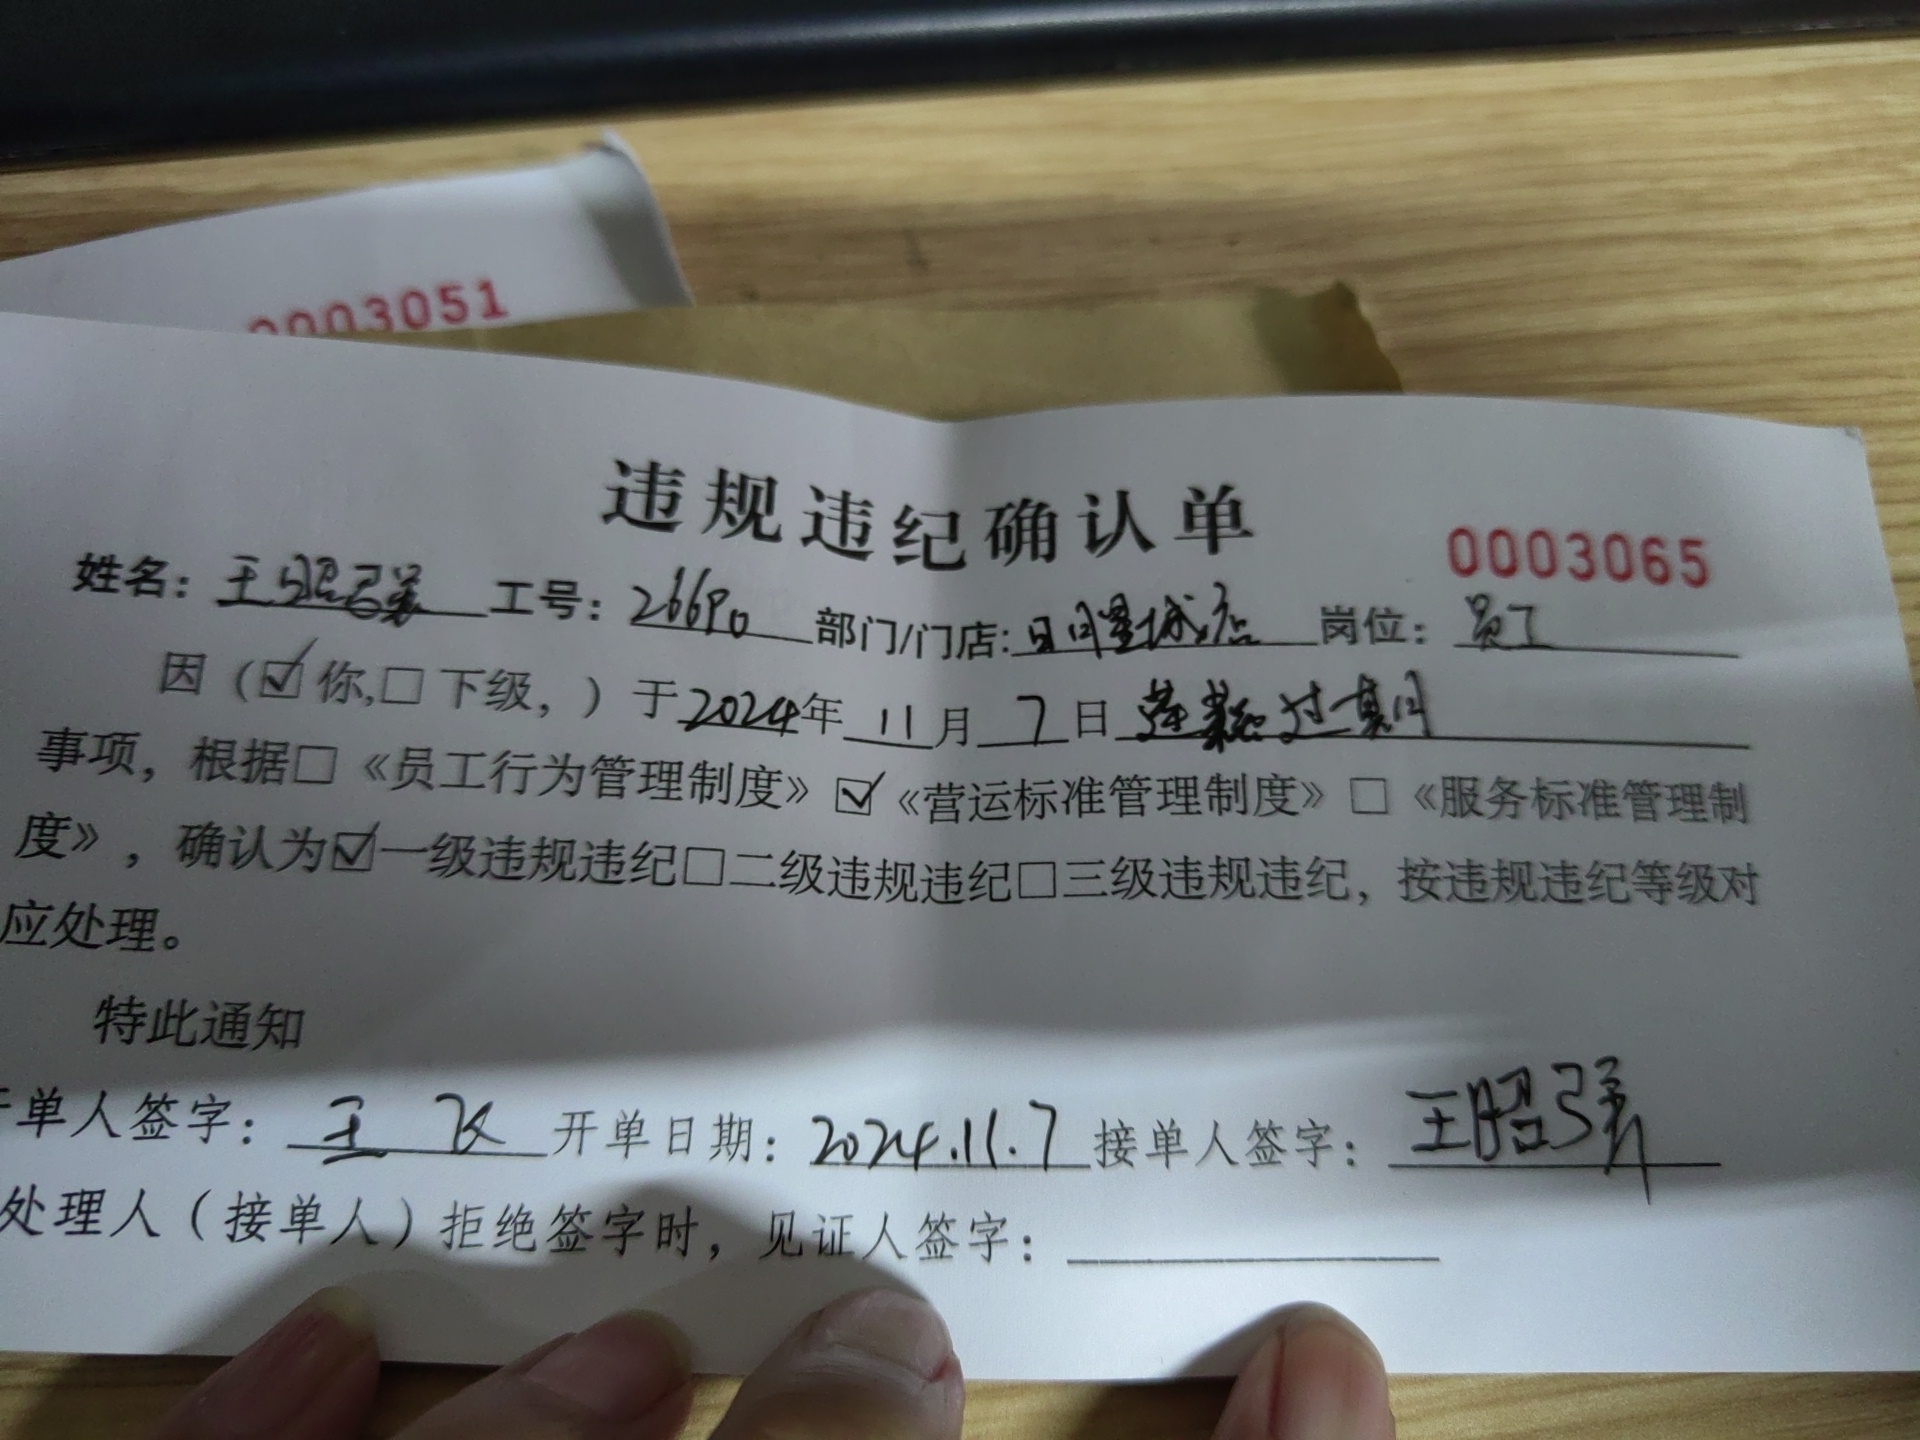 0003051
违规违纪确认单
0003065
姓名: 王昭 工号: 26690 部门/门店: 日月星城店 岗位: 员工
因（☑你,□下级，）于2024年11月7日 过期
事项，根据□《员工行为管理制度》☑《营运标准管理制度》□《服务标准管理制
度》，确认为☑一级违规违纪□二级违规违纪□三级违规违纪，按违规违纪等级对
应处理。
特此通知
单人签字: 王飞 开单日期: 2024.11.7 接单人签字: 王昭
处理人（接单人）拒绝签字时，见证人签字: